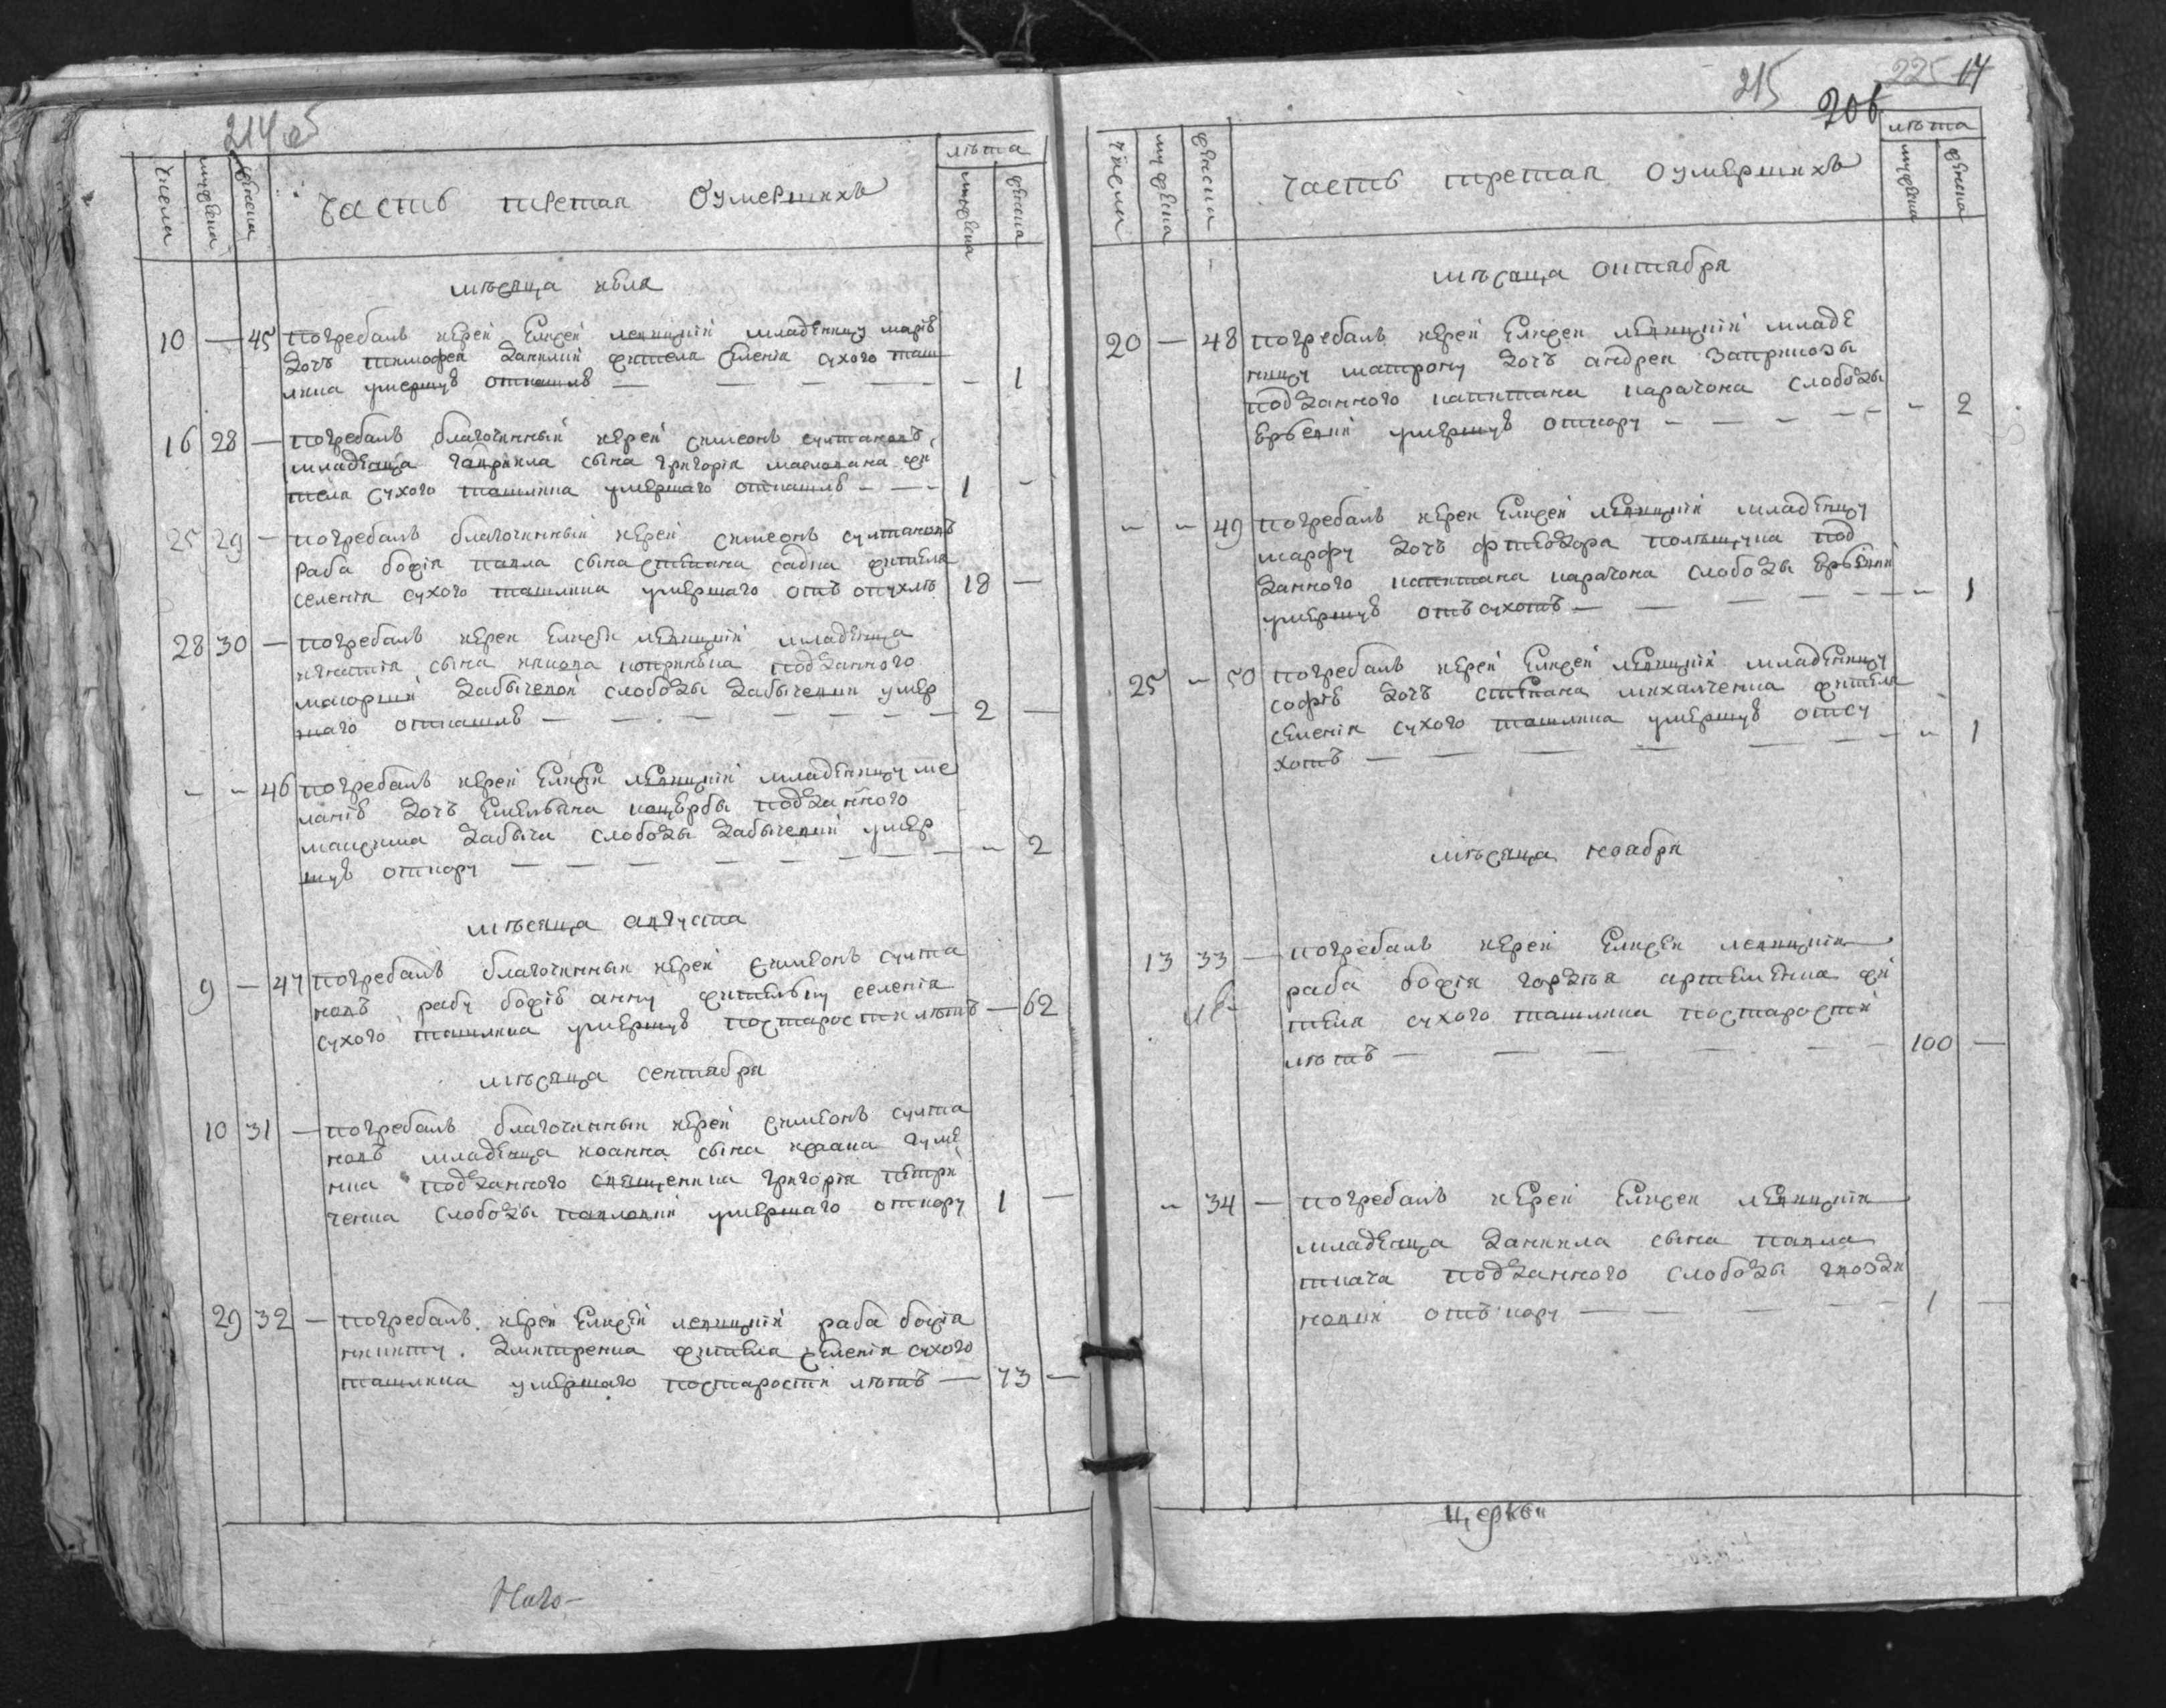 214 об
числа
мужеска
женска
Часть третая Оумершихъ
лѣта
мужеска
женска
мѣсяца июля
10 — 45 погребалъ иерей Елисей младеницу марію
дочъ тимофея жителя селенія сухого таш
лика умершую откашлю — — — — — 1
16 28 — погребалъ благочинный иерей симеонъ султановъ
младенца гавриила сына григорія маслована жи
теля сухого ташлика умершаго откашлю — — 1 —
25 29 — погребалъ благочинный иерей симеонъ султановъ
раба божія павла сына степана жителя
селенія сухого ташлика умершаго отъ опухлѣ 18 —
28 30 — погребалъ иерей Елисей младенца
игнатія сына подданного
маіорши забычевой слободы забычевки умер
шаго откашлю — — — — — 2 —
„ „ 46 погребалъ иерей Елисей младенницу ме
ланію дочъ Емельяна подданного
забычи слободы забычевки умер
шую откору — — — — — „ 2
мѣсяца августа
9 — 47 погребалъ благочинный иерей симеонъ султа
новъ рабу божію анну жителку селенія
сухого ташлика умершую постарости лѣтъ — 62
мѣсяца сентября
10 31 — погребалъ благочинный иерей симеонъ султа
новъ младенца иоанна сына ивана гуме
нка подданного священика григорія петри
ченка слободы павловки умершаго откору 1 —
29 32 — погребалъ иерей Елисей раба божія
никиту дмитренка жителя селенія сухого
ташлика умершаго постарости лѣтъ — 73 —
215
206
225
14
числа
мужеска
женска
Часть третая оумершихъ
лѣта
мужеска
женска
мѣсяца октября
20 — 48 погребалъ иерей Елисей младе
ницу матрону дочъ андрея
подданного капитана карачона слободы
умершую откору — — — — „ 2
„ „ 49 погребалъ иерей Елисей младеницу
марфу дочъ фтеодора под
данного капитана карачона слободы
умершую отъ сухотъ — — — — „ 1
25 „ 50 погребалъ иерей Елисей младенницу
софію дочъ степана михалченка жителя
селенія сухого ташлика умершую отсу
хотъ — — — — — „ 1
мѣсяца ноября
13 33 — погребалъ иерей Елисей
раба божія гордѣя артеменка жи
теля сухого ташлика постарости
лѣтъ — — — — — 100 —
„ 34 — погребалъ иерей Елисей
младенца даниила сына павла
ткача подданного слободы гвозди
новки отъ кору — — — — 1 —
церкви